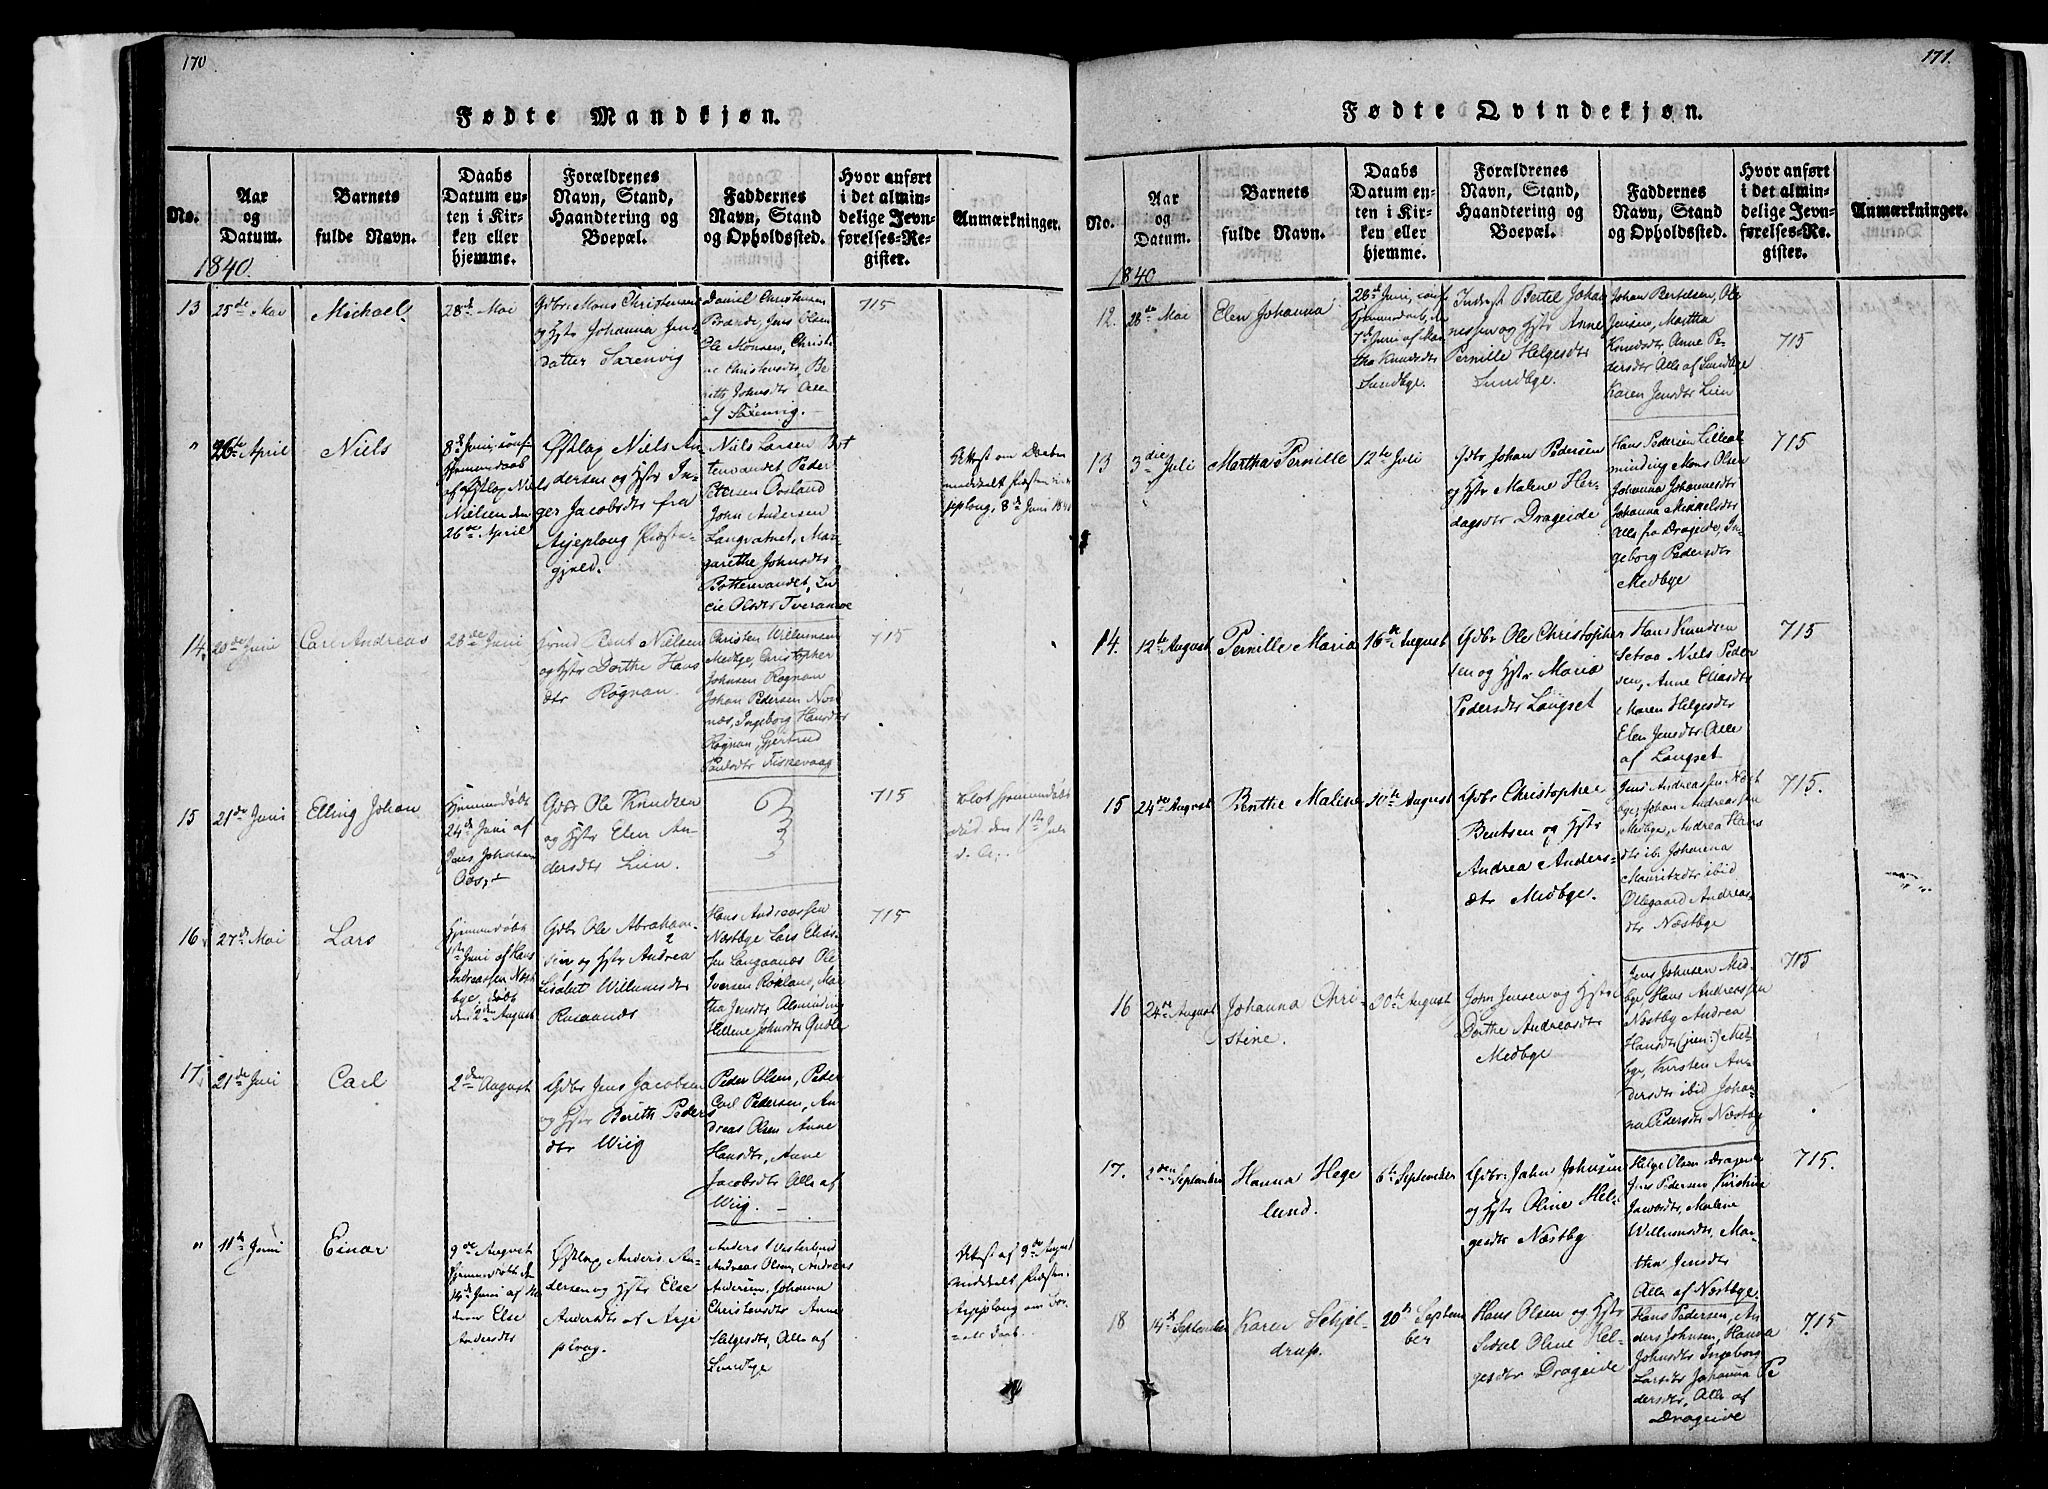 170
Fødte Mandkjøn.
No.
Aar
og
Datum.
Barnets
fulde Navn.
Daabs
Datum en-
ten i Kir-
ken eller
hjemme.
Forældrenes
Navn, Stand,
Haandtering og
Boepæl.
Faddernes
Navn, Stand
og Opholdssted.
Hvor anført
i det almin-
delige Jevn-
førelses-Re-
gister.
Anmærkninger.
1840.
13
25de Mai
Michael
28de Mai
Gdbr: Mons Christensen
og Hstr Johanna Jens
datter Saxenvig
Daniel Christensen
Brænde, Jens Olsen
Ole Monsen, Christi-
ne Christensdtr, Be
rith Johnsdtr Alle
af Saxenvig.
715
"
26de April
Niels
8de Juni, conf
Hjemmedaab
af Østlap Niels
Nielsen den
26de April
Østlap Niels An
dersen og Hstr In-
ger Jacobsdtr fra
Arjeploug Præste-
gjeld.
Niels Larsen Bot
tenvandet, Peder
Petersen Ovsland
John Andersen
Langvatnet, Mar
garethe Johnsdtr
Bottenvandet,
Olsdtr Tveraamoe
Attest om Daaben
meddeelt Præsten i Ar
jeploug, 8de Juni 1840
14.
20de Juni
Carl Andreas
28de Juni
Bent Nielsen
og Hstr Dorthe Hans
dtr Rognan.
Christen Willumsen
Medbye, Christopher
Johnsen Rognan
Johan Pedersen Nord
næs, Ingeborg Hansdtr
Rognan, Gjertrud
Paulsdtr Fiskevaag
715
15
21de Juni
Elling Johan
Hjemmedøbt
24de Juni af
Jens Johnsen
Gdbr Ole Knudsen
og Hstr Elen An
dersdtr Lien.
715
blot hjemmedøbt
død den 1ste Juli
d. A.
16
27de Mai
Lars
Hjemmedøbt
1ste Juni af Hans
Andreassen Næst
bye, døbt
den 2den August
Gdbr Ole Abraham-
sen og Hstr Andrea
Lisabet Willumsdtr
Rusaanæs
Hans Andreassen
Næstbye Lars Elias-
sen Langaanæs Ole
Iversen Røkland, Mar
tha Jensdtr Alminding
Hellene Johnsdtr
715
17.
21de Juni
Carl
2den August
Gdbr Jens Jacobsen
og Hstr Berith Peders
dtr Wiig
Peder Olsen, Peder
Carl Pedersen, An
dreas Olsen Anne
Hansdtr, Anne
Jacobsdtr Alle af
Wiig.
"
11te Juni
Einar
9de August
Hjemmedøbt den
14de Juni af Mo
deren Else
Andersdtr
Østlap Anders An
dersen og Hstr Else
Andersdtr af Arje
ploug.
Anders Westerlund
Andreas Olsen, Andreas
Andersen, Johanna
Christensdtr Anne
Helgesdtr, Alle af
Sundbye
Attest af 9de August
meddeelt Præsten i
Arjeploug om
Daab.
171.
Fødte Qvindekjøn.
No.
Aar
og
Datum.
Barnets
fulde Navn.
Daabs
Datum en-
ten i Kir-
ken eller
hjemme.
Forældrenes
Navn, Stand,
Haandtering og
Boepæl.
Faddernes
Navn, Stand
og Opholdssted.
Hvor anført
i det almin-
delige Jevn-
førelses-Re-
gister.
Anmærkninger.
1840
12.
28de Mai
Elen Johanna
28de Juni, conf
Hjemmedaab, den
7de Juni af Mar
tha Knudsdtr
Sundbye.
Inderst Bertel Johan
nessen og Hstr Anne
Pernille Helgesdtr
Sundbye.
Johan Bertelsen, Ole
Jensen, Martha
Knudsdtr Anne Pe
dersdtr Alle af Sundbye
Karen Jensdtr Lien
715
13
3die Juli
Martha Pernille
12te Juli
Gdbr Johan Pedersen
og Hstr Malene Her-
dagsdtr Drageide
Hans Pedersen Lilleal
minding Mons Olsen
Johanna Johannesdtr
Johanna Mikkelsdtr
Alle fra Drageide, In
geborg Pedersdtr
Medbye
715
14.
12te August
Pernille Maria
16de August
Gdbr Ole Christopher
sen og Hstr Maria
Pedersdtr Langset
Hans Knudsen
Setsaa Niels Peder
sen, Anne Eliasdtr
Maren Helgesdtr
Elen Jensdtr Alle
af Langset
715
15
24de August
Benthe Malene
30te August
Gdbr Christopher
Bentsen og Hstr
Andrea Anders-
dtr Medbye.
Jens Andreassen Næst
bye, Johan Andreassen
Medbye, Andrea Hans
dtr ib. Johanna
Mauritzdtr ibid
Ollegaard Andreas-
dtr Næstbye
715.
16
24de August
Johanna Chri-
stine.
30te August
John Jensen og Hstr
Dorthe Andreasdtr
Medbye
Jens Johnsen Med-
bye Hans Andreassen
Næstby Andrea
Hansdtr (sen:) Med
bye, Kirsten An-
dersdtr ibid Johan-
na Pedersdtr Næstby
715
17.
2den September
Hanna Hege
lund.
6te September
Gdbr: John Johnsen
og Hstr Oline Hel-
gesdtr Næstby
Helge Olsen Drageide
Jens Pedersen Kirstine
Malene
Willumsdtr, Mar-
tha Jensdtr
Alle af Næstbye.
715.
18
14de September
Karen Schjel-
drup.
20de Septem
ber
Hans Olsen og Hstr
Sidsel Oline Hel-
gesdtr Drageide
Hans Pedersen, An
ders Johnsen, Hanna
Johnsdtr Ingeborg
Larsdtr Johanna Pe
dersdtr, Alle af
Drageide
715